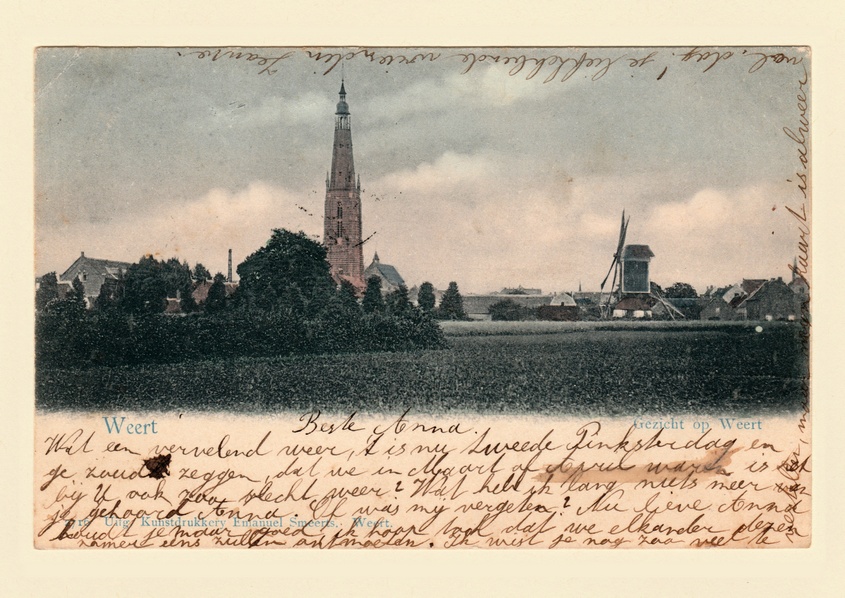 Weert
Gezicht op Weert
Beste Anna.
Wat een vervelend weer, 't is nu tweede Pinksterdag en
ge zoudt zeggen, dat we in Maart of April waren is het
bij U ook zoo slecht weer? Wat heb ik lang niets meer van
je gehoord Anna. Of was my vergeten? Nu lieve Anna
16 Uitg. Kunstdrukkery Emanuel Smeerts, Weert.
houdt je maar goed ik hoop toch dat we elkander dezen
zomer eens zullen ontmoeten. Ik wist je nog zoo veel te
kaart is alweer
vol, dag! je liefhebbende vriendin Jeanne.